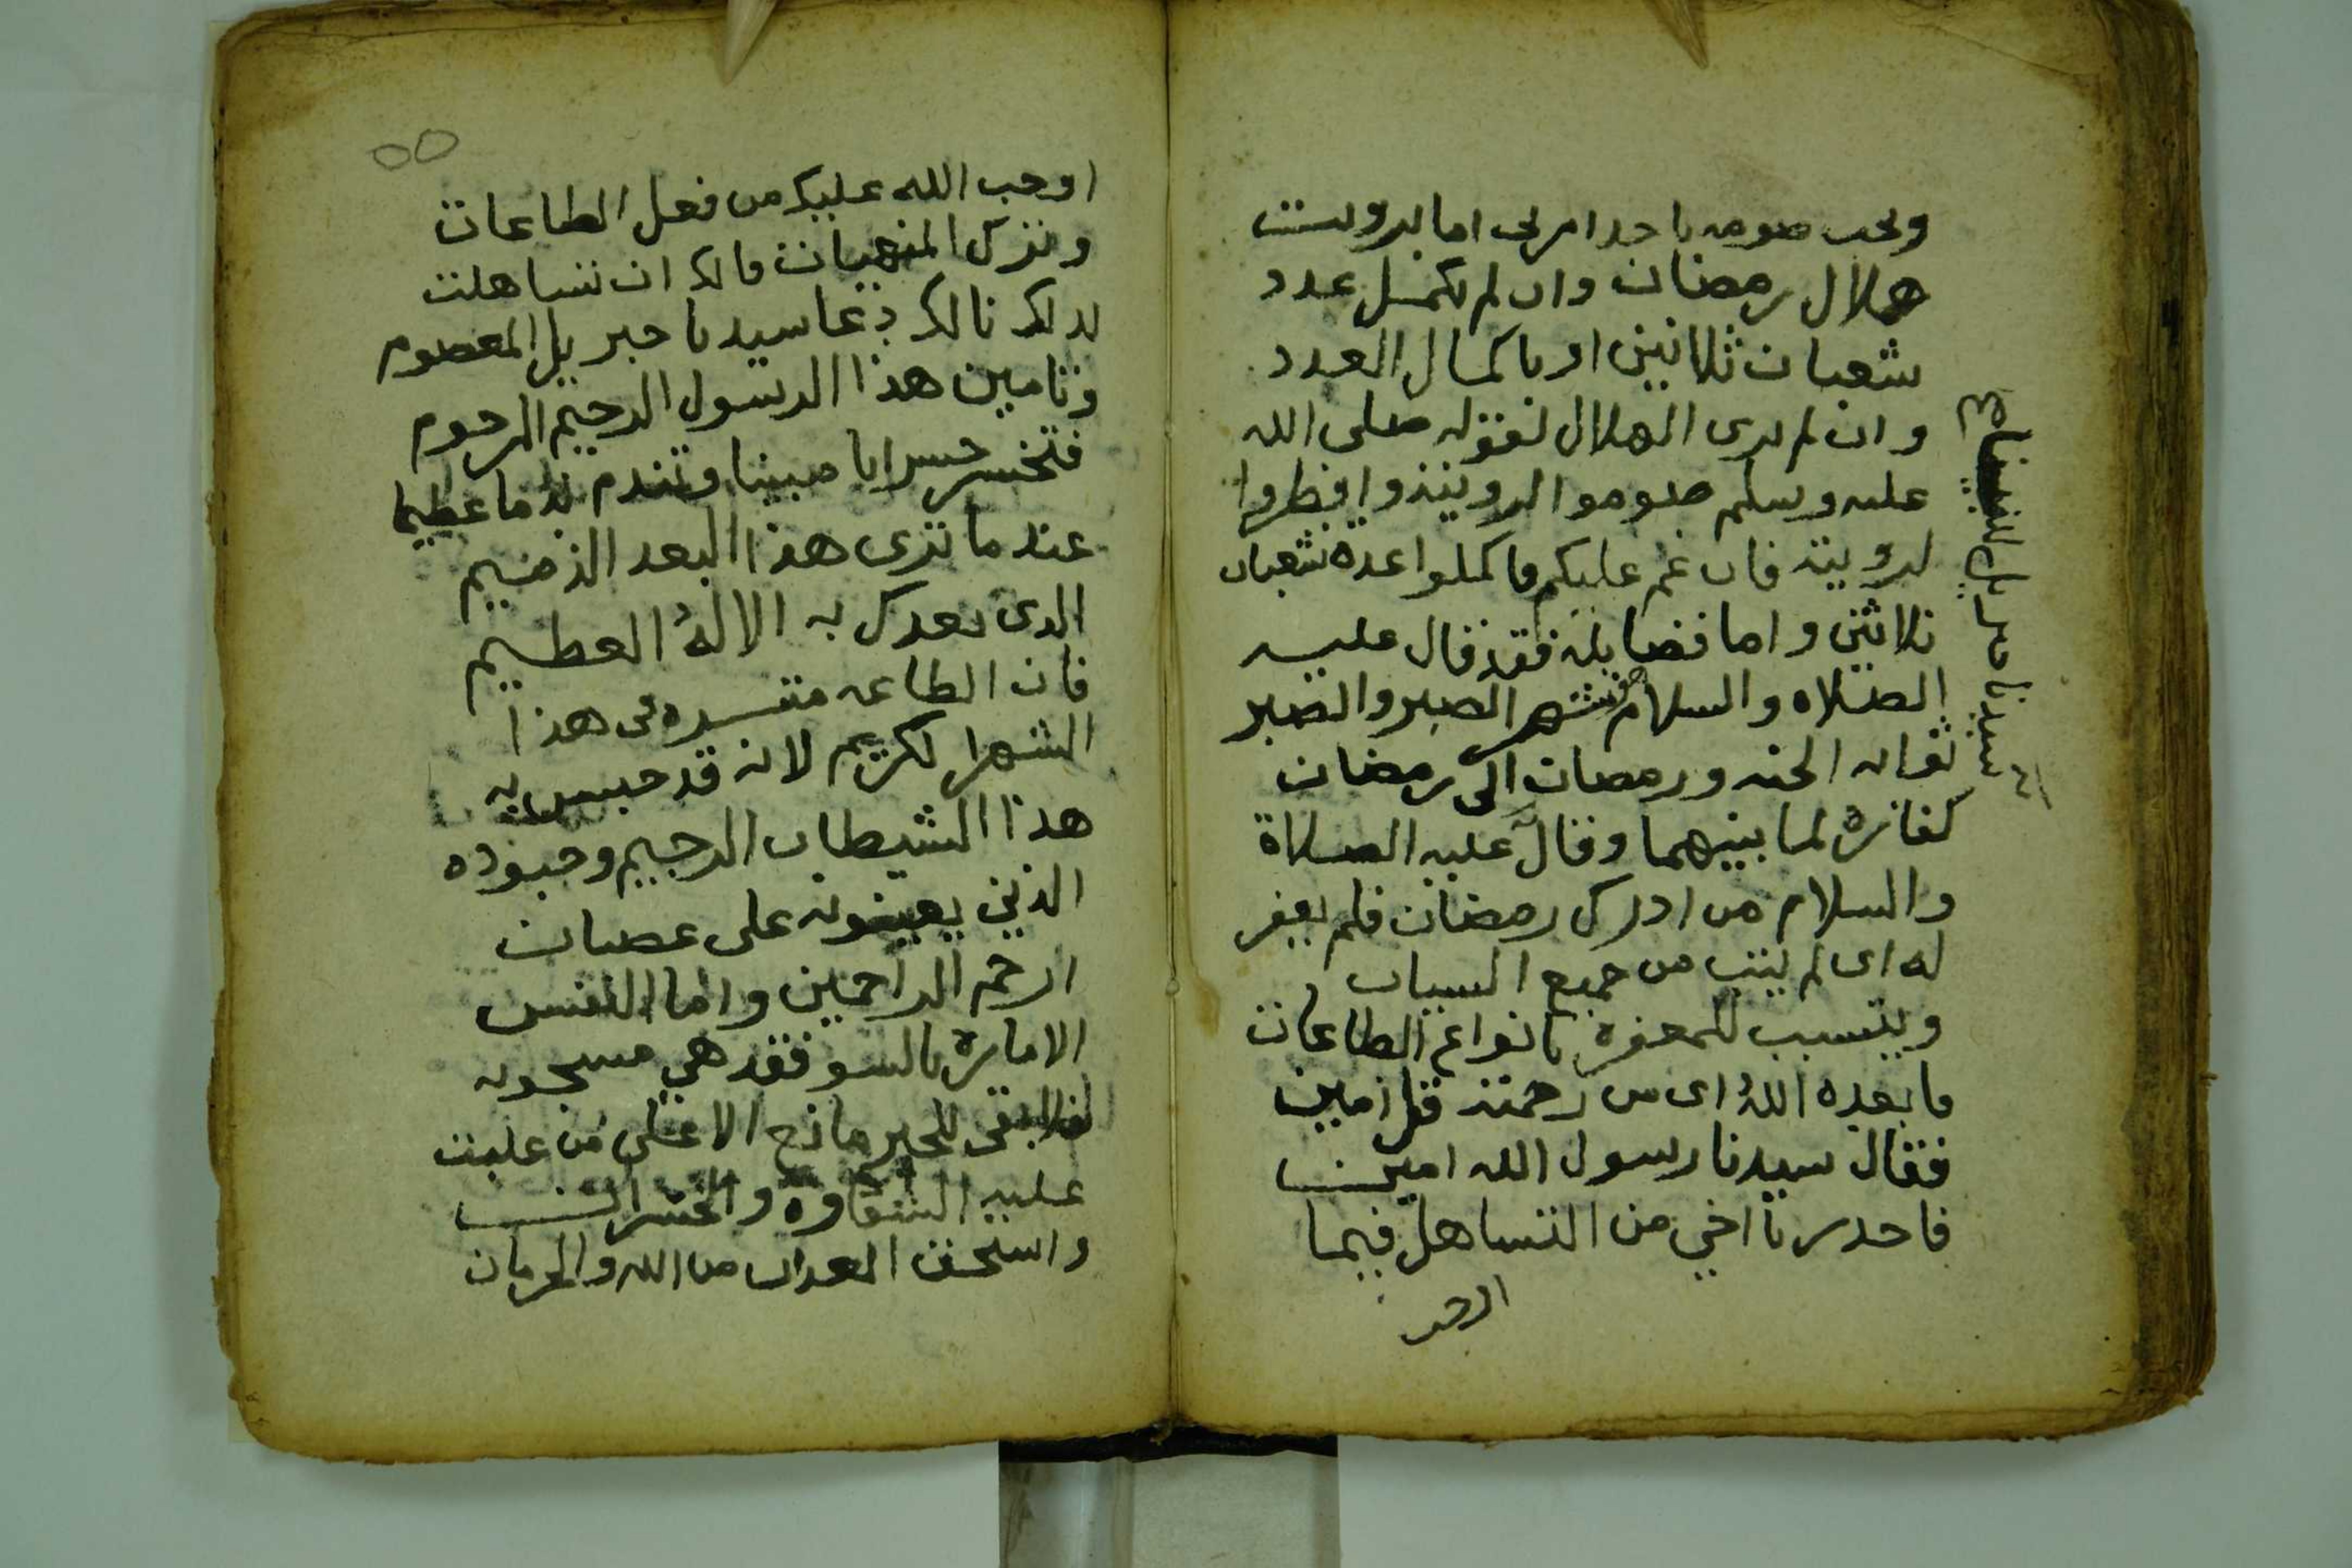 ويجب صومه باحد امرين اما بروية
هلال رمضان وان لم تكمل عدد
شعبان ثلاثين او باكمال العدد
وان لم يرى الهلال لقوله صلى الله
عليه وسلم صوموا لرويته وافطروا
لرويته فان غم عليكم فاكملوا عدة شعبان
ثلاثين واما فضايله فقد قال عليه
الصلاه والسلام شهر الصبر والصبر
ثوابه الجنه ورمضان الى رمضان
كفارة لما بينهما وقال عليه الصلاة
والسلام من ادرك رمضان فلم يغفر
له اى لم يتب من جميع السيات
ويتسبب للمغفره بانواع الطاعات
فابعده الله اى من رحمته قل امين
فقال سيدنا رسول الله امين
فاحدر يا اخي من التساهل فيما
سيدنا جبريل
٥٥
اوجب الله عليك من فعل الطاعات
وترك المنهيات فانك ان تساهلت
لدلك نالك دعا سيدنا جبريل المعصوم
وتامين هذا الرسول الرحيم المرحوم
فتخسر خسرانا مبينا وتندم ندما عظيما
عند ما ترى هذا البعد الذميم
الدى بعدك به الالهُ العظيم
فان الطاعه متيسره فى هذا
الشهر الكريم لانه قد حبس به
هذا الشيطان الرجيم وجنوده
الذين يعينونه على عصيان
ارحم الراحمين واما النفس
الاماره بالسو فقد هي مسجونه
فلا يبقى للخير مانع الا على من غلبت
عليه الشقاوة والخسران
واستحق العداب من الله والحرمان